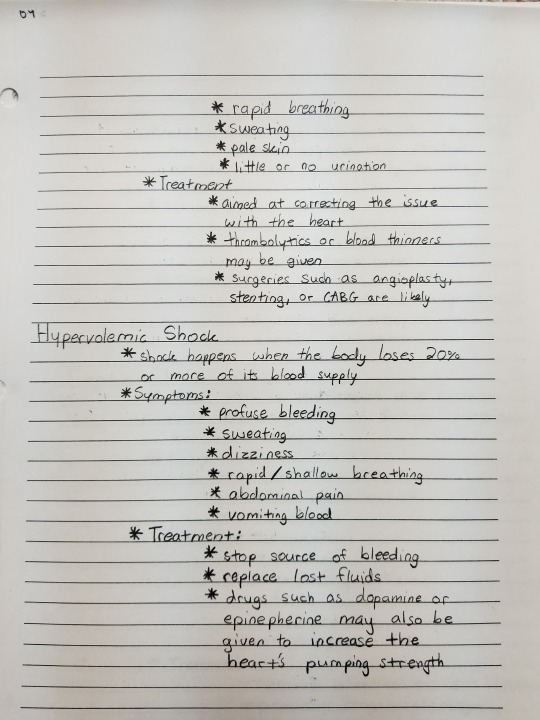 04
* rapid breathing
* sweating
* pale skin
* little or no urination
* Treatment
* aimed at correcting the issue
with the heart
* thrombolytics or blood thinners
may be given
* surgeries such as angioplasty,
stenting, or CABG are likely
Hypervolemic Shock
* shock happens when the body loses 20%
or more of its blood supply
* Symptoms:
* profuse bleeding
* sweating
* dizziness
* rapid/shallow breathing
* abdominal pain
* vomiting blood
* Treatment:
* stop source of bleeding
* replace lost fluids
* drugs such as dopamine or
epinepherine may also be
given to increase the
heart's pumping strength